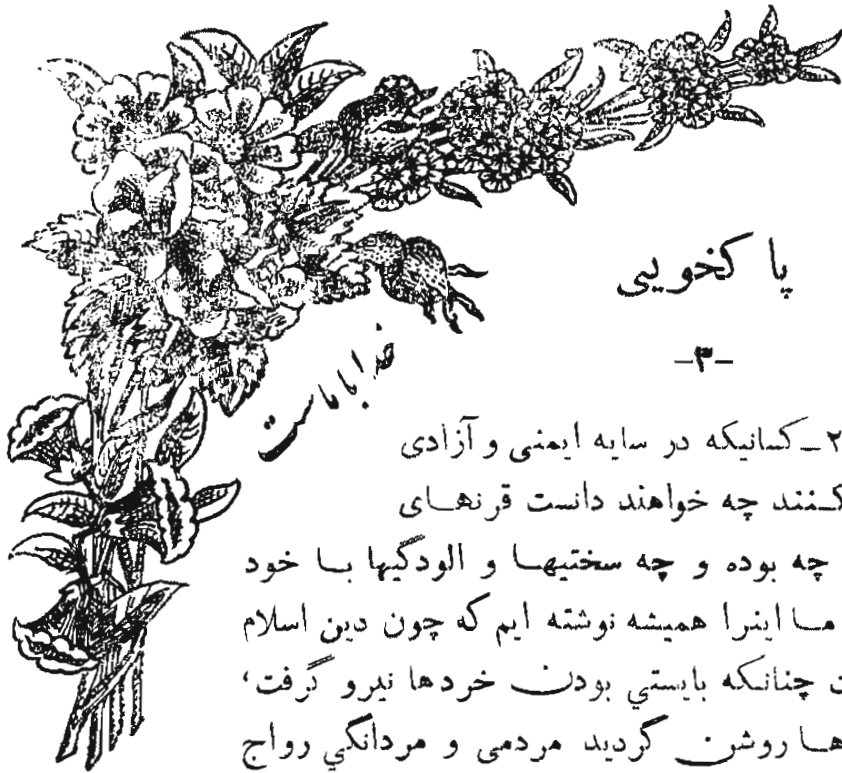 پاکخویی
-۳-
خدا با ماست
۲_ کسانیکه در سایه ایمنی و آزادی
کنند چه خواهند دانست قرنهای
چه بوده و چه سختیها و الودگیها با خود
ما اینرا همیشه نوشته ایم که چون دین اسلام
چنانکه بایستی بودن خردها نیرو گرفت،
ها روشن گردید مردمی و مردانگی رواج